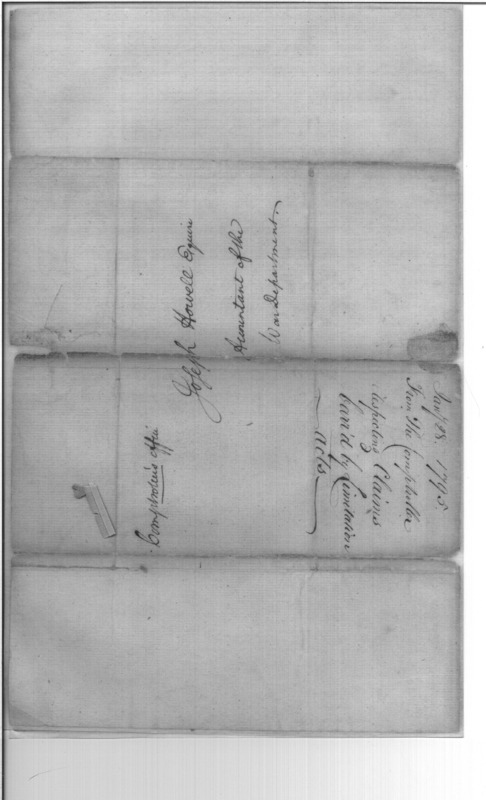 Joseph Howell Esquire
Accountant of the
War department.
Comptroller's office
Jany 28 1795
From the Comptroller
respecting Claims
barr'd by Limitation
acts